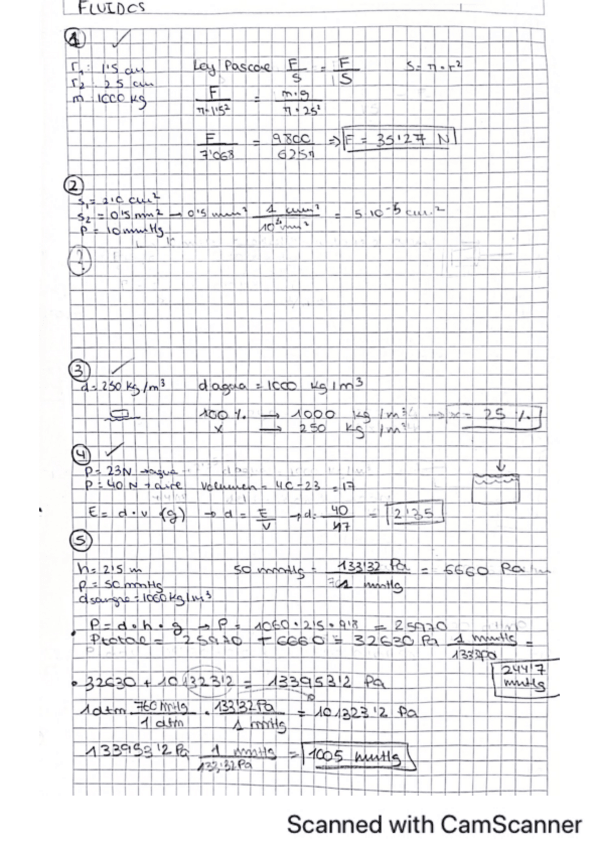 FLUIDOS
1
r₁: 1'5 cm
r₂: 25 cm
m: 1000 kg
Ley Pascal F/S = F/S
S = π·r²
F/π·1'5² = m·g/π·25²
F/7'068 = 9800/625π ⇒ F = 35'27 N
2
S₁ = 2'0 cm²
S₂ = 0'5 mm² → 0'5 mm² 1 cm²/10⁴ mm² = 5·10⁻⁵ cm²
P = 10 mmHg
?
3
d = 250 kg/m³ d agua = 1000 kg/m³
100 % → 1000 kg/m³ → x = 25 %
x → 250 kg/m³
4
P = 23N → agua
P = 40 N → aire Volumen = 40-23 = 17
E = d·v (g) → d = E/V → d: 40/17 = 2'35
5
h = 2'5 m
P = 50 mmHg
d sangre = 1060 kg/m³
50 mmHg = 133'32 Pa/1 mmHg = 6660 Pa
P = d·h·g → P = 1060·2'5·9'8 = 25970
Ptotal = 25970 + 6660 = 32630 Pa 1 mmHg/133Pa =
244'7 mmHg
• 32630 + 101323'2 = 133953'2 Pa
1atm 760 mmHg/1 atm · 133'32Pa/1 mmHg = 101323'2 Pa
133953'2 Pa 1 mmHg/133,32Pa = 1005 mmHg
Scanned with CamScanner